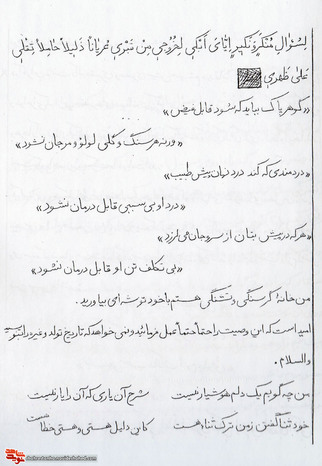 لِسُؤالِ مُنْکَرٍ وَ نَکیرٍ اِیّایَ اَبْکی لِخُرُوجی مِنْ قَبْری عُرْیاناً ذَلیلاً حامِلاً ثِقْلی
عَلیٰ ظَهْری
«گوهر پاک بباید که شود قابل فیض»
«ورنه هر سنگ و گلی لولو و مرجان نشود»
«دردمندی که کند درد نهان پیش طبیب»
«درد او بی سببی قابل درمان نشود»
«هر که در پیش بتان از سر جان می لرزد»
«بی تکلف تن او قابل درمان نشود»
من خانهٔ گرسنگی و تشنگی هستم با خود توشه ای بیاورید.
امید است که این وصیت را حتماً حتماً عمل فرمائید و نمی خواهد که تاریخ تولد و غیره را بنویسید
والسلام.
من چه گویم یک دلم هوشیار نیست شرح آن یاری که آن را یار نیست
خود ثنا گفتن ز من ترک ثناست کاین دلیل هستی و هستی خطاست